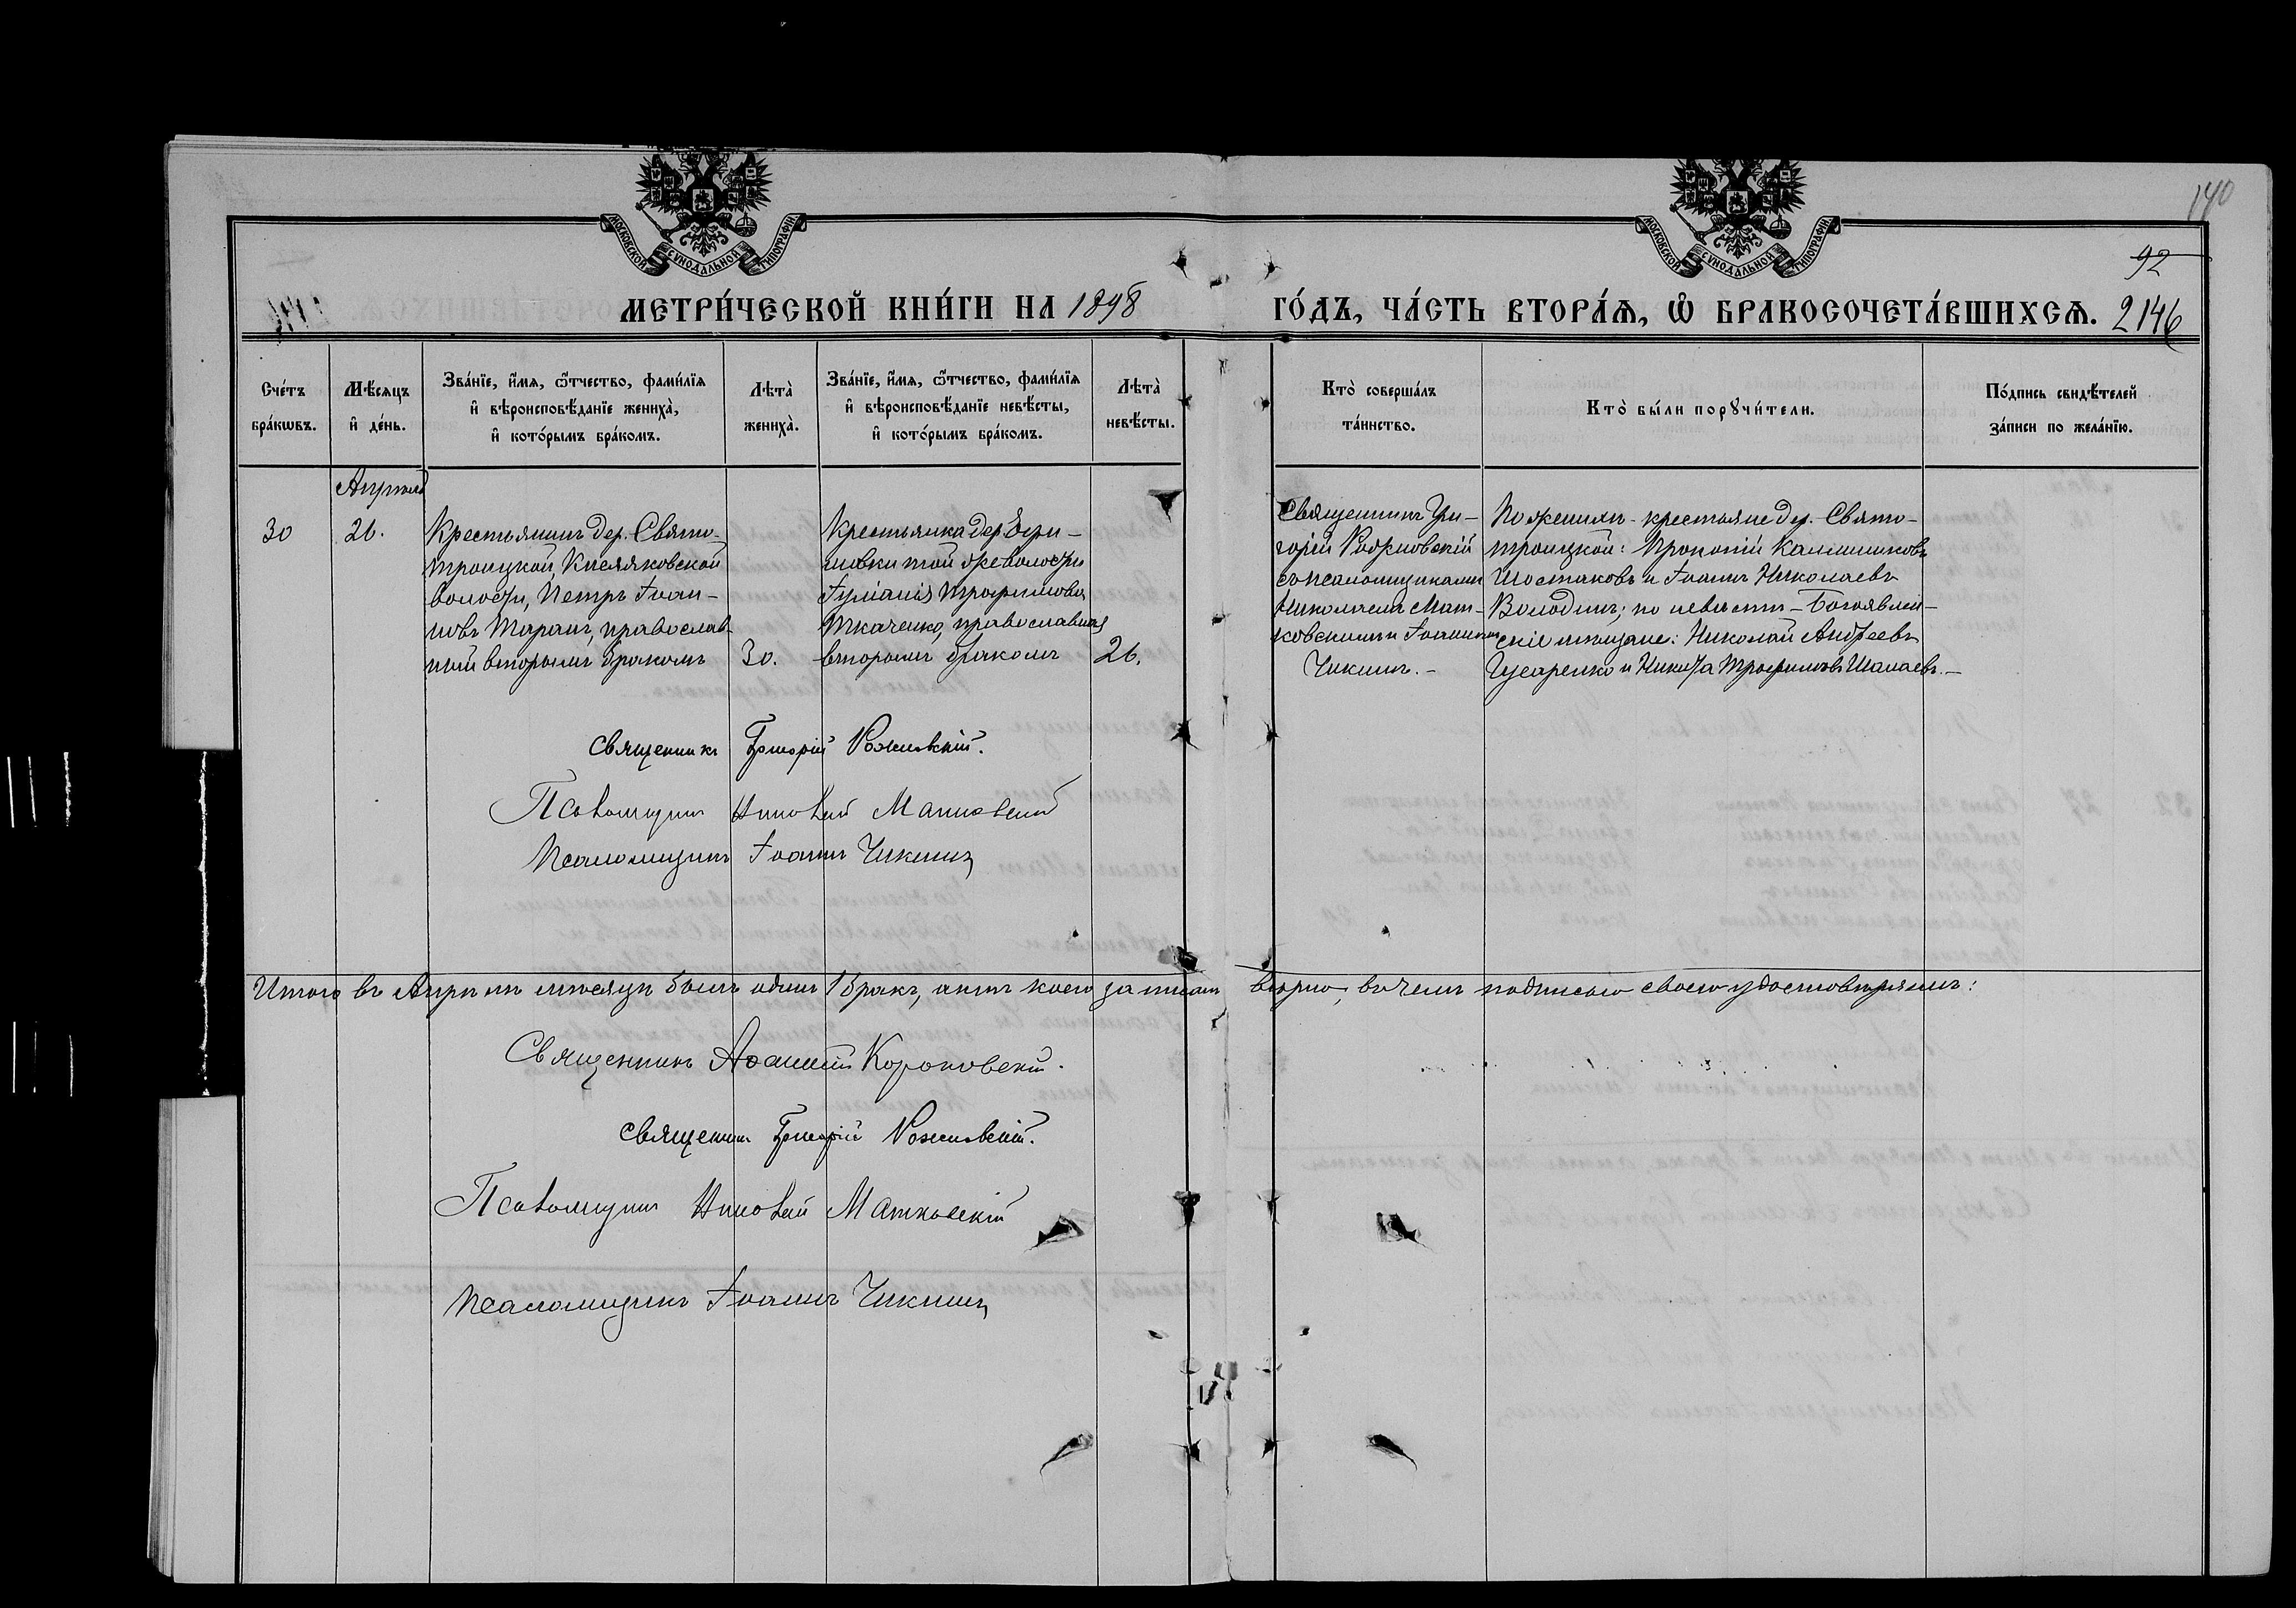 МОСКОВСКОЙ СѴНОДАЛЬНОЙ ТИПОГРАФІИ
МОСКОВСКОЙ СѴНОДАЛЬНОЙ ТИПОГРАФІИ
140
92
МЕТРИ́ЧЕСКОЙ КНИ́ГИ НА 1898 ГО́ДЪ, ЧА́СТЬ ВТОРА́Ѧ, Ѽ БРАКОСОЧЕТА́ВШИХСѦ. 2146
Сче́тъ
бра́кѡвъ.
Мѣ́сѧцъ
и҆ де́нь.
Зва́нїе, и҆́мѧ, ѻ҆́тчество, фами́лїѧ
и҆ вѣроисповѣ́данїе жениха̀,
и҆ кото́рымъ бра́комъ.
Лѣта̀
жениха̀.
Зва́нїе, и҆́мѧ, ѻ҆́тчество, фами́лїѧ
и҆ вѣроисповѣ́данїе невѣ́сты,
и҆ кото́рымъ бра́комъ.
Лѣта̀
невѣ́сты.
Кто̀ соверша́лъ
та́инство.
Кто̀ бы́ли порꙋчи́тели.
По́дпись свидѣ́телей
за́писи по жела́нїю.
Апрѣль
30
26.
Крестьянинъ дер. Свято-
троицкой, Кисляковской
волости, Петръ Іоан-
новъ Таранъ, православ-
ный вторымъ бракомъ
30.
Крестьянка дер.
той же волости
Іуліанія Трофимова
Ткаченко, православная
вторымъ бракомъ
26.
Священникъ Гри-
горій Рожновскій
съ псаломщиками
Николаемъ Мат-
ковскимъ и Іоанномъ
Чикинъ.-
По женихѣ - крестьяне дер. Свято-
троицкой: Прокопій Калинниковъ
Шостаковъ и Іоаннъ Николаевъ
Володинъ; по невѣстѣ - Богоявлен-
скіе мѣщане: Николай Андреевъ
Гусаренко и Никита Трофимовъ Шалаевъ.-
Священникъ Григорій Рожновскій.
Псаломщикъ Николай Матковскій
Псаломщикъ Іоаннъ Чикинъ
Итого въ Апрѣлѣ мѣсяцѣ былъ одинъ 1 бракъ, актъ коего записанъ вѣрно, въ чемъ подписью своею удостовѣряемъ:
Священникъ Короновскій.
Священникъ Григорій Рожновскій.
Псаломщикъ Николай Матковскій
Псаломщикъ Іоаннъ Чикинъ